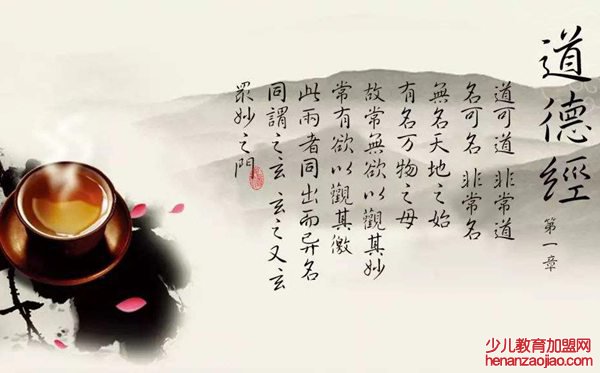 道德經
第一章
道可道 非常道
名可名 非常名
無名天地之始
有名万物之母
故常無欲以觀其妙
常有欲以觀其徼
此兩者同出而异名
同謂之玄 玄之又玄
眾妙之門
少儿教育加盟网
henanzaojiao.com